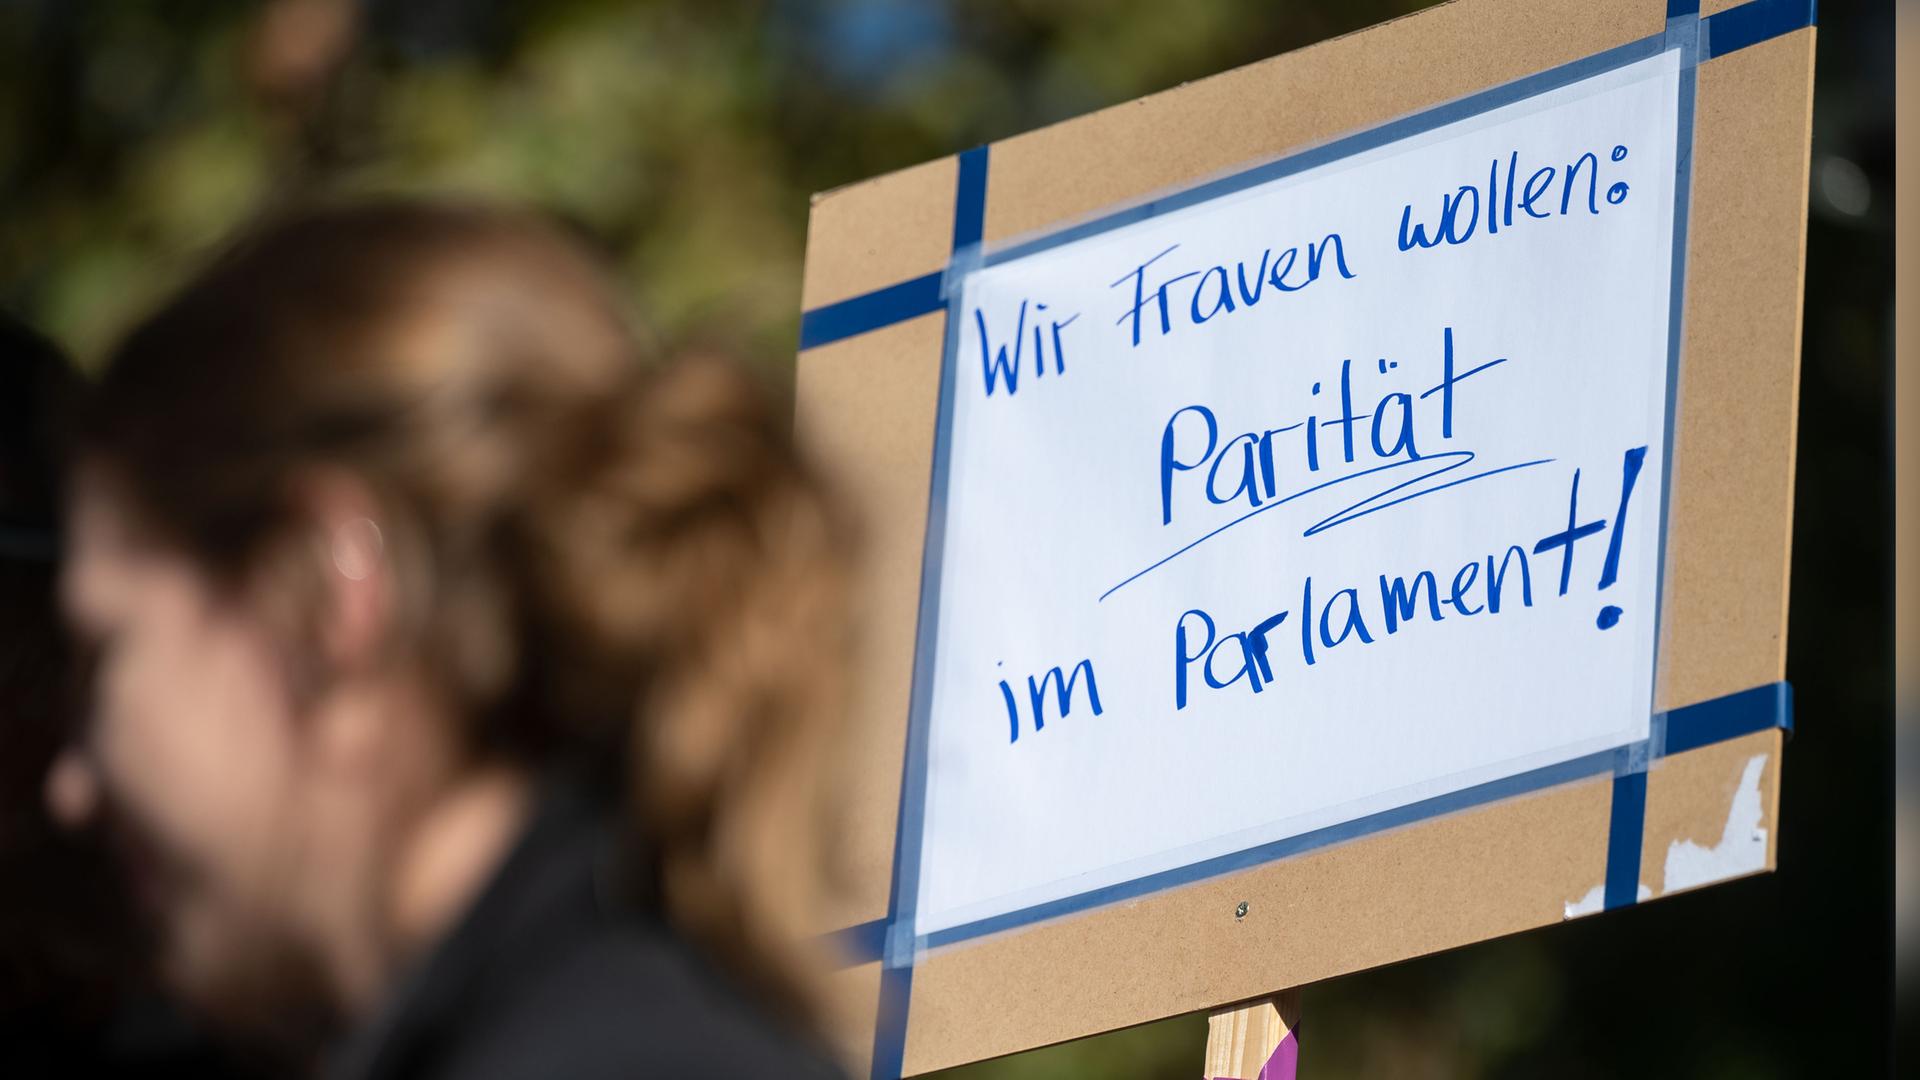 Wir Frauen wollen:
Parität
im Parlament!